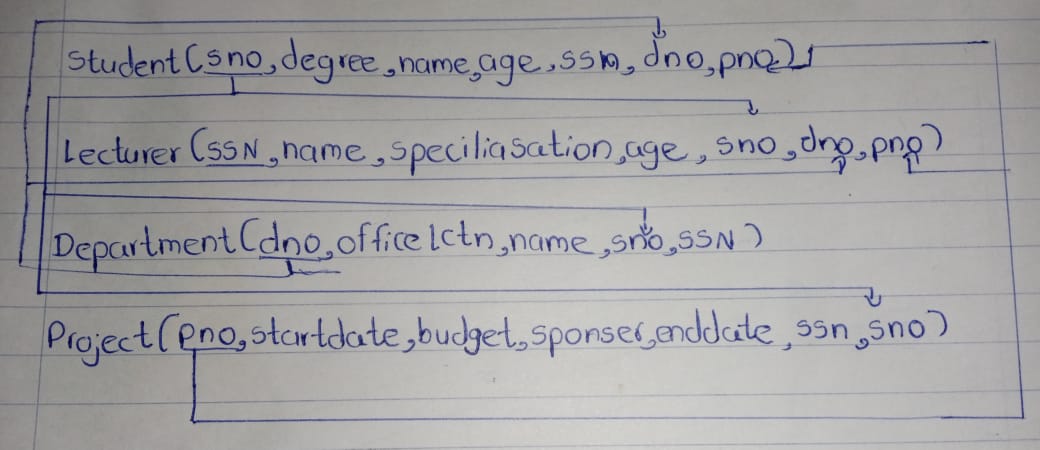 Student(sno,degree,name,age,ssn,dno,pno)
Lecturer(SSN,name,speciliasation,age,sno,dno,pno)
Department(dno,officelctn,name,sno,SSN)
Project(pno,startdate,budget,sponser,enddate,ssn,sno)